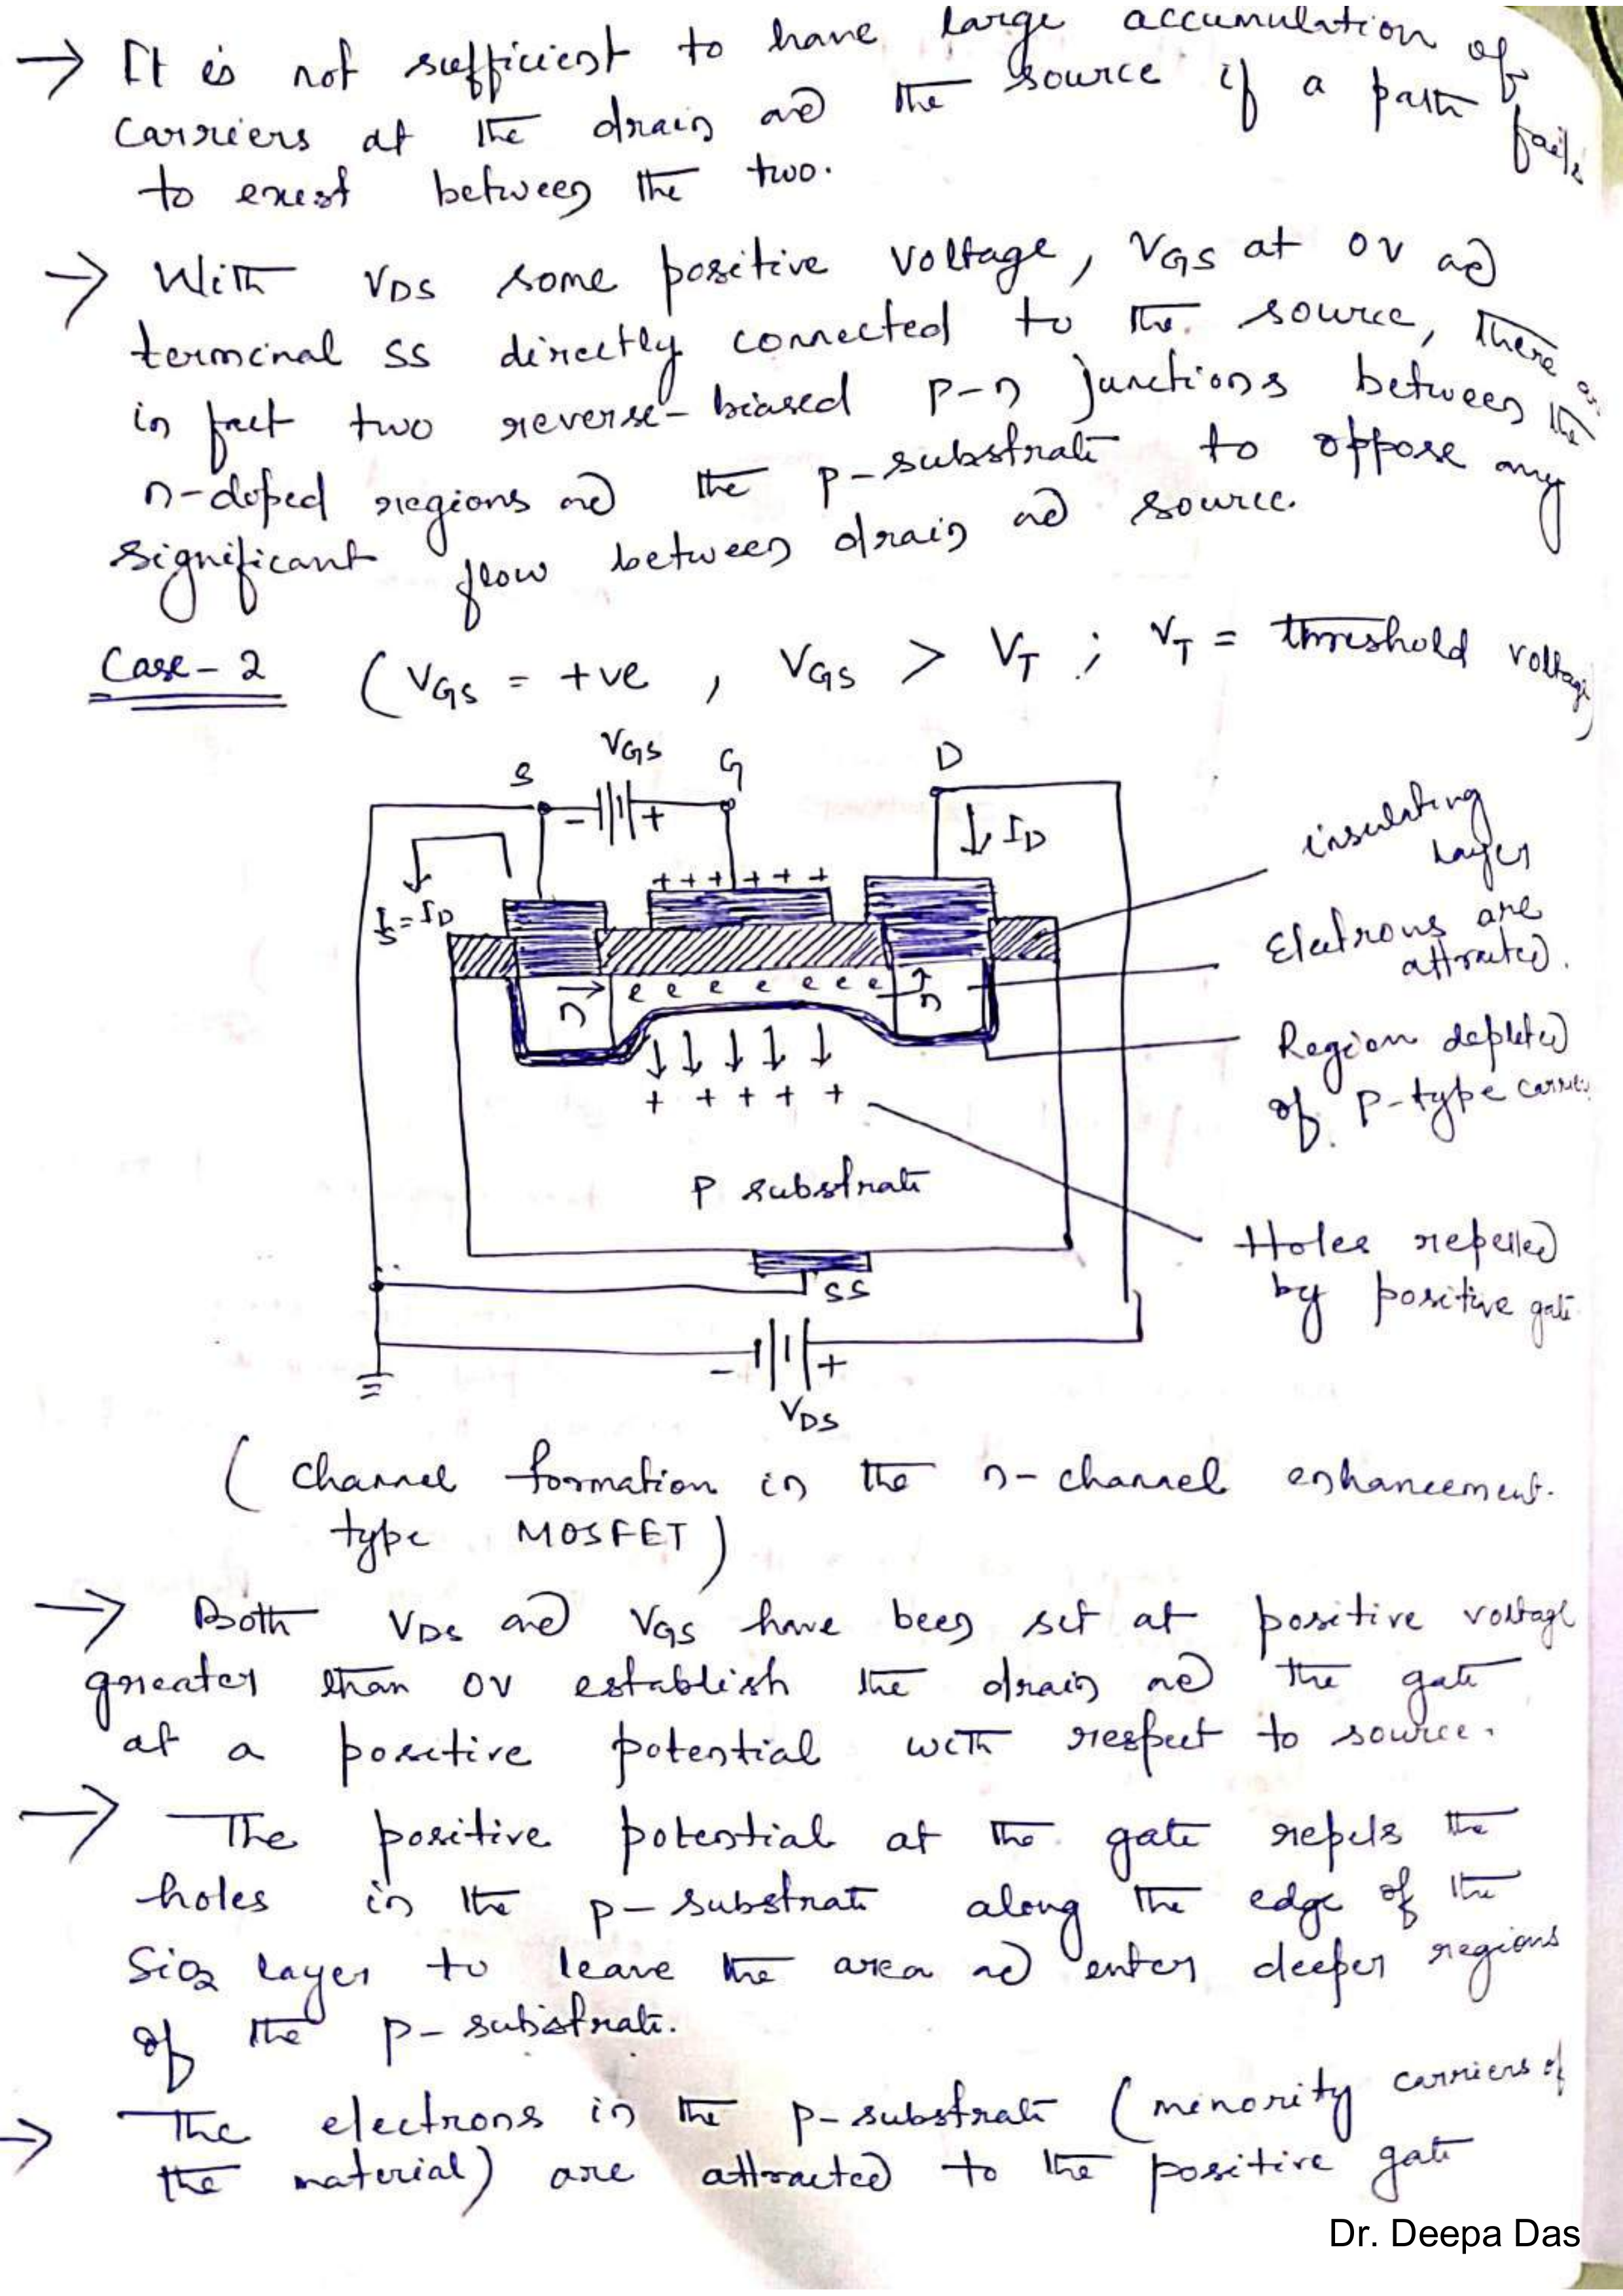 → It is not sufficient to have large accumulation of
carriers at the drain and the source if a path fails
to exist between the two.
→ With VDS some positive voltage, VGS at 0V and
terminal SS directly connected to the source, there are
in fact two reverse-biased p-n junctions between the
n-doped regions and the p-substrate to oppose any
significant flow between drain and source.
Case-2 (VGS = +ve, VGS > VT ; VT = threshold voltage)
VGS
S G D
- +
ID
insulating
layer
+ + + + + +
IS = ID
Electrons are
attracted.
e e e e e e e
n n
Region depleted
of p-type carriers
+ + + + +
P substrate
Holes repelled
by positive gate
SS
- +
VDS
(Channel formation in the n-channel enhancement-
type MOSFET)
→ Both VDS and VGS have been set at positive voltage
greater than 0V establish the drain and the gate
at a positive potential with respect to source.
→ The positive potential at the gate repels the
holes in the p-substrate along the edge of the
SiO2 layer to leave the area and enter deeper regions
of the p-substrate.
→ The electrons in the p-substrate (minority carriers of
the material) are attracted to the positive gate
Dr. Deepa Das